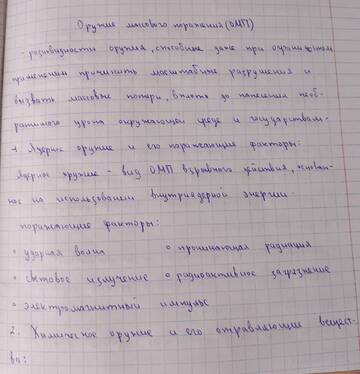 Оружие массового поражения (ОМП)
- разновидности оружия, способные даже при ограниченном
применении причинить масштабные разрушения и
вызвать массовые потери, вплоть до нанесения необ-
ратимого урона окружающей среде и государствам.
1. Ядерное оружие и его поражающие факторы:
Ядерное оружие - вид ОМП взрывного действия, основан-
ное на использовании внутриядерной энергии.
поражающие факторы:
• ударная волна • проникающая радиация
• световое излучение • радиоактивное загрязнение
• электромагнитный импульс
2. Химическое оружие и его отравляющие вещест-
ва: